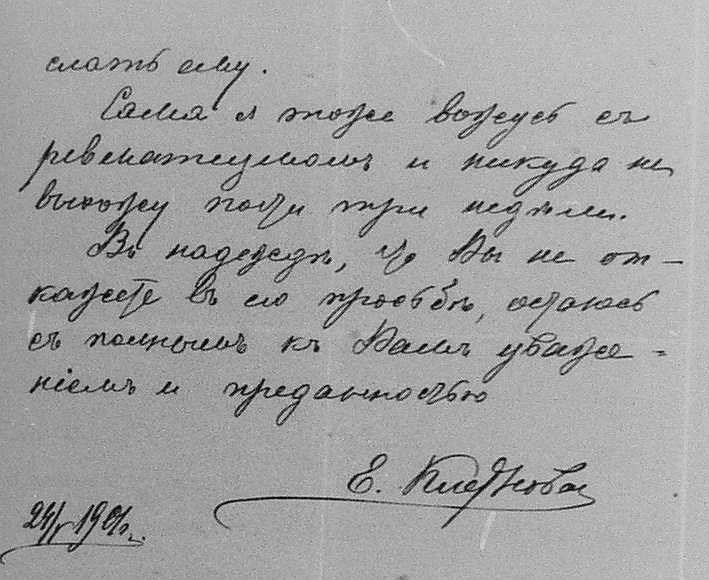 слать ему.
Сама я тоже вожусь съ
ревматизмомъ и никуда не
выхожу почти три недѣли.
Въ надеждѣ, что Вы не от-
кажете въ ею просьбѣ, остаюсь
съ полнымъ къ Вамъ уваже-
ніемъ и преданностью
Е.